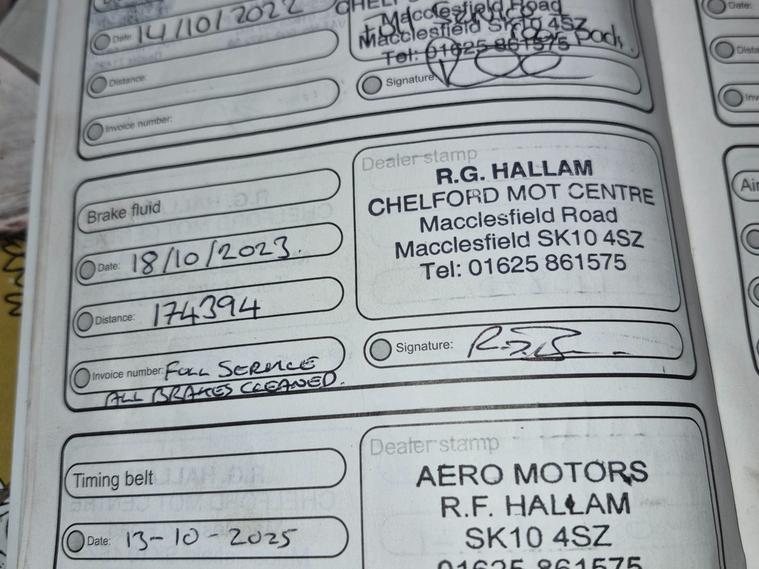 Date: 14/10/2022
Distance:
Invoice number:
Macclesfield Road
Macclesfield SK10 4SZ
Tel: 01625 861575
Pads.
Signature:
Brake fluid
Date: 18/10/2023.
Distance: 174394
Invoice number: FULL SERVICE
ALL BRAKES CLEANED.
Dealer stamp
R.G. HALLAM
CHELFORD MOT CENTRE
Macclesfield Road
Macclesfield SK10 4SZ
Tel: 01625 861575
Signature:
Timing belt
Date: 13-10-2025
Dealer stamp
AERO MOTORS
R.F. HALLAM
SK10 4SZ
01625 861575
Date: